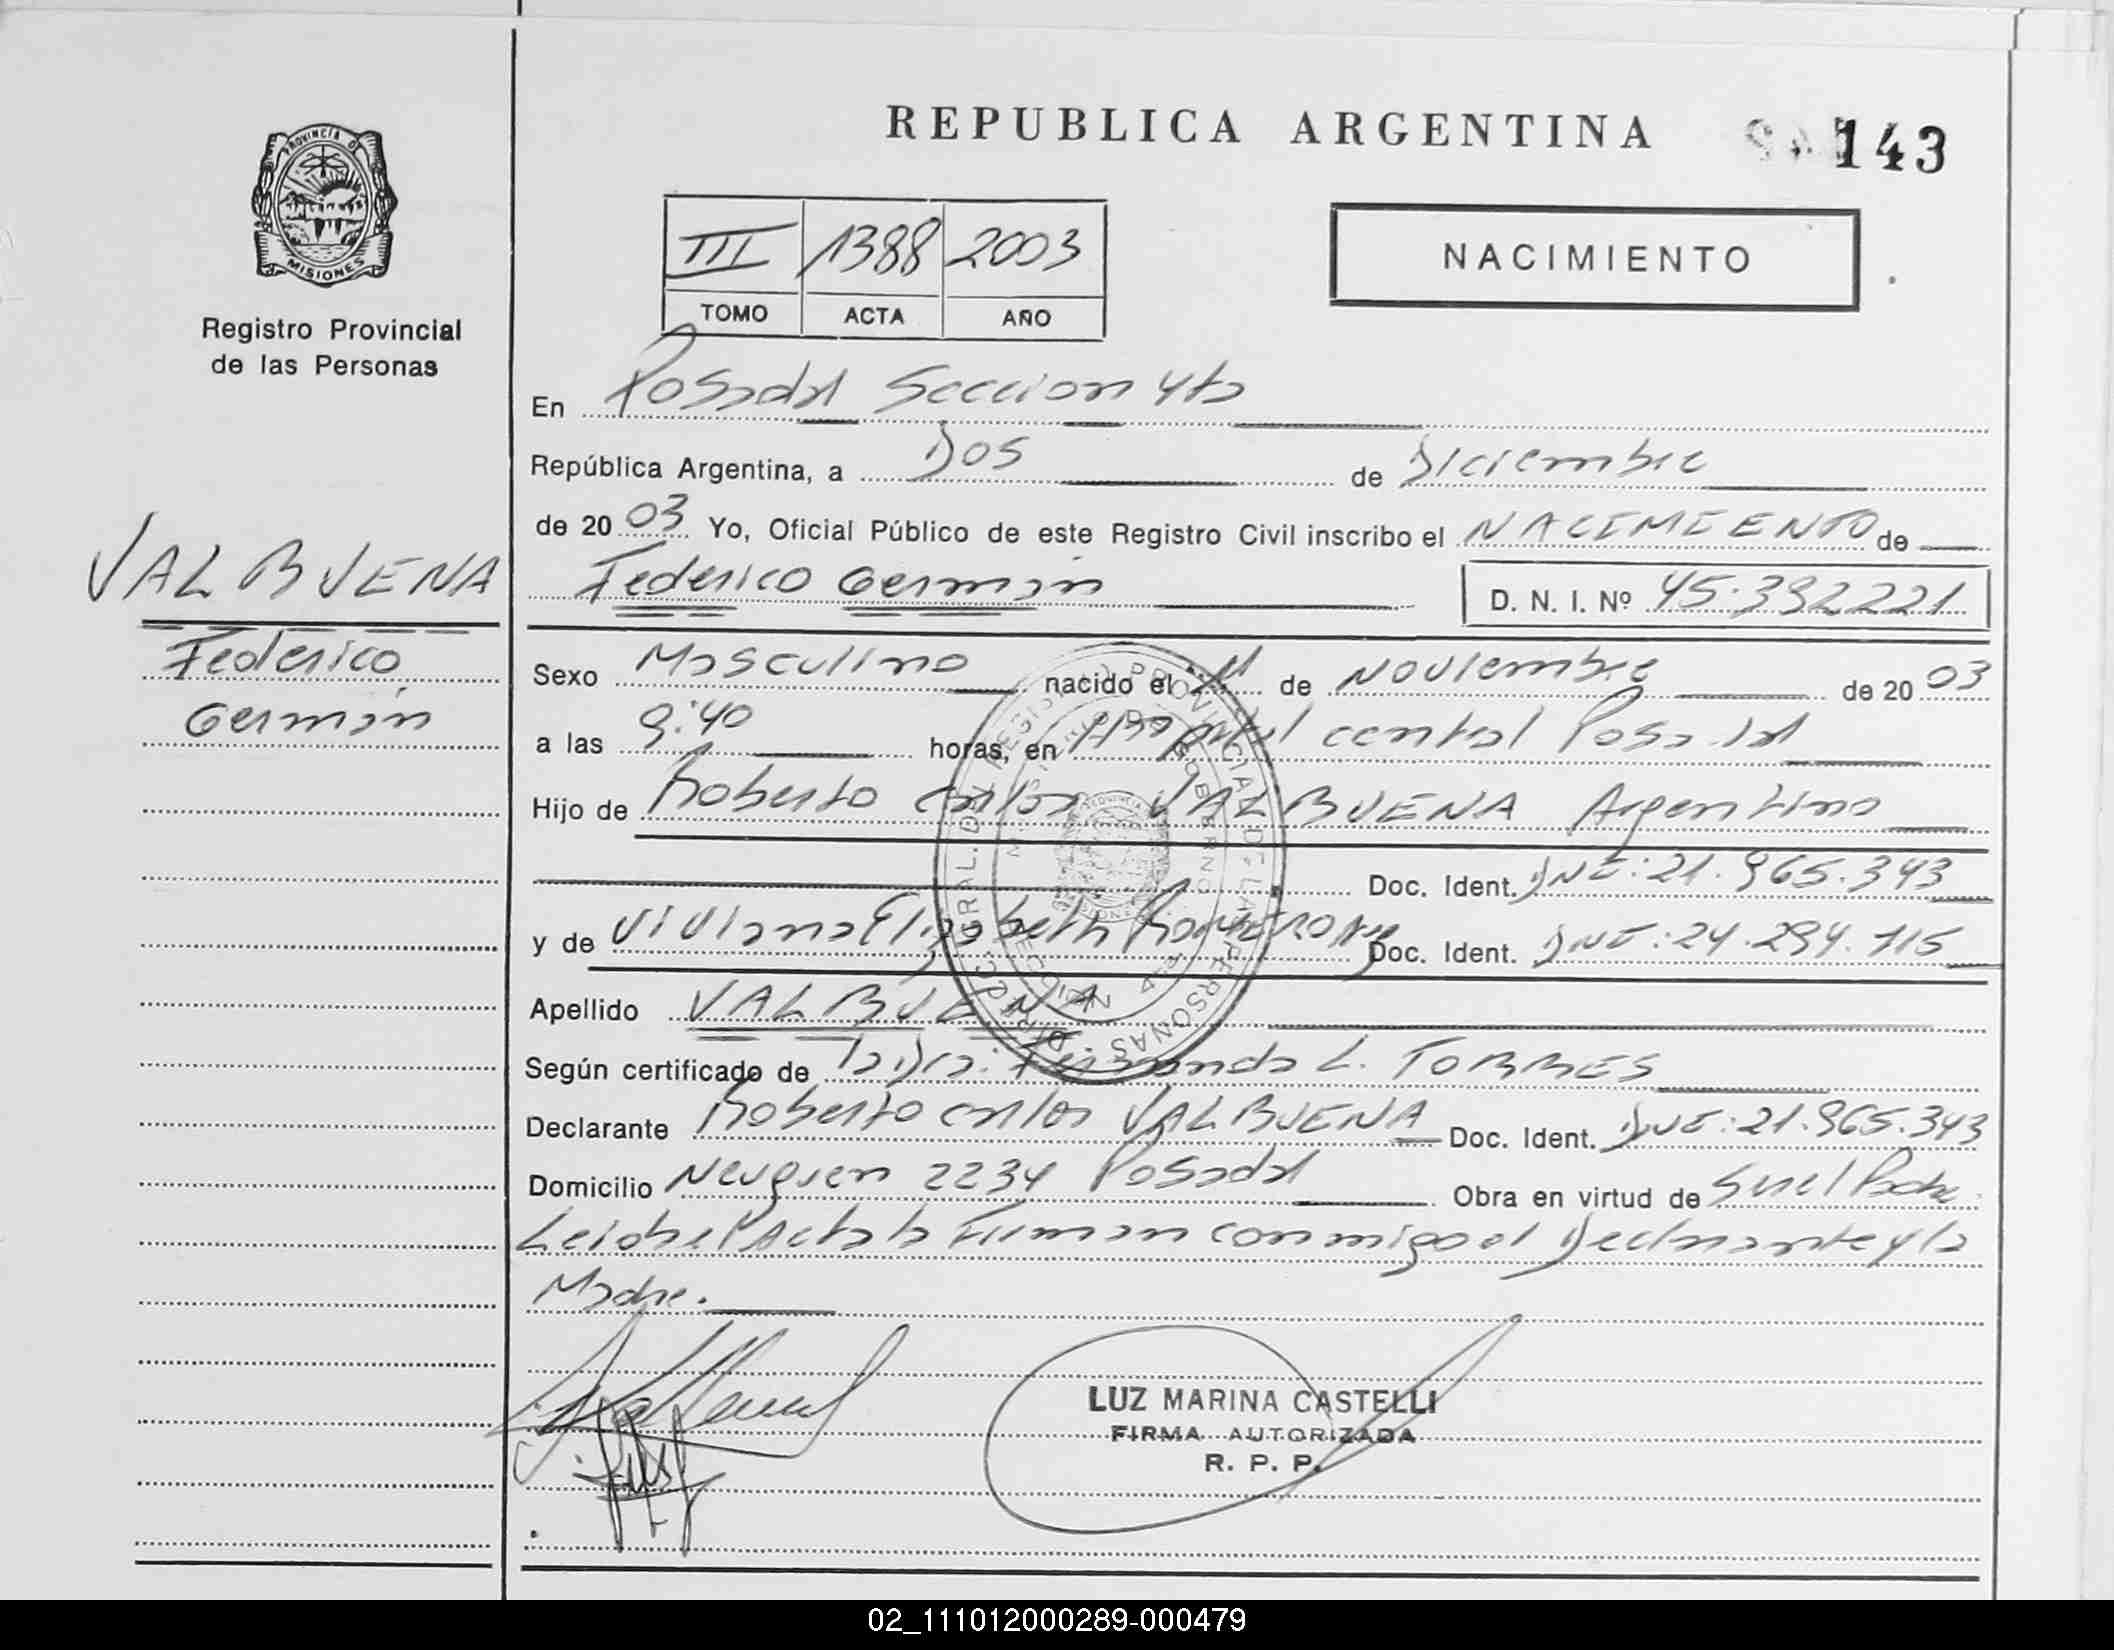 REPUBLICA ARGENTINA
143
PROVINCIA DE
MISIONES
Registro Provincial
de las Personas
III 1388 2003
TOMO ACTA AÑO
NACIMIENTO
En Posadas Seccion 4ta
República Argentina, a Dos de Diciembre
de 20 03 Yo, Oficial Público de este Registro Civil inscribo el NACIMIENTO de
Federico Germán D. N. I. Nº 45.332221
VALBUENA
Federico
Germán
Sexo Masculino nacido el 11 de Noviembre de 20 03
a las 9:40 horas, en Hospital central Posadas
Hijo de Roberto Carlos VALBUENA Argentino
Doc. Ident. DNI: 21.965.343
y de Viviana Elizabeth Doc. Ident. DNI: 24.294.715
Apellido VALBUENA
Según certificado de la Dra. Fernanda L. TORRES
Declarante Roberto Carlos VALBUENA Doc. Ident. DNI: 21.965.343
Domicilio Neuquen 2234 Posadas Obra en virtud de Ser el Padre.
Leida el Acta la Firman conmigo el Declarante y la
Madre.
LUZ MARINA CASTELLI
FIRMA AUTORIZADA
R. P. P.
02_111012000289-000479